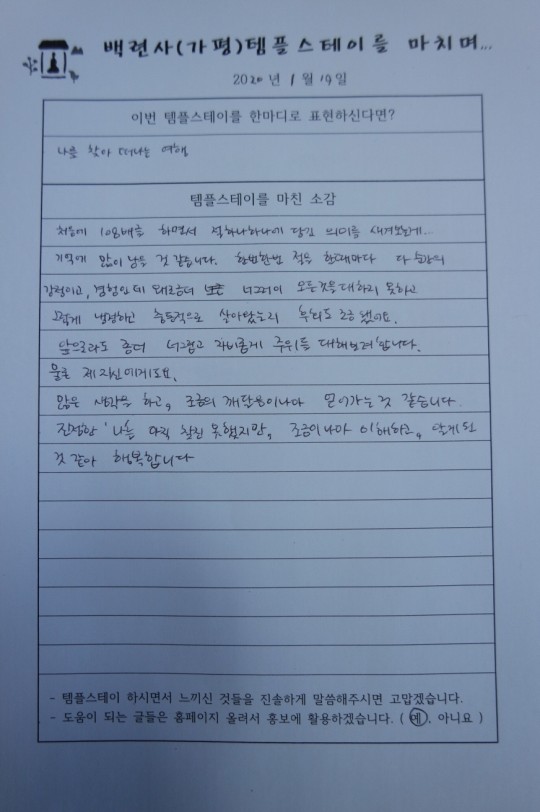 백련사(가평)템플스테이를 마치며...
2020년 1월 19일
이번 템플스테이를 한마디로 표현하신다면?
나를 찾아 떠나는 여행
템플스테이를 마친 소감
처음에 108배를 하면서 절하나하나에 담긴 의미를 새겨보는게...
기억에 많이 남는 것 같습니다. 한번한번 절을 할때마다 다
경험인데 너그러이 모든것을 대하지 못하고
냉정하고 충동적으로 살아왔는지 후회도 조금 됐어요.
앞으로라도 좀더 너그럽고 자비롭게 주위를 대해보려 합니다.
물론 제 자신에게도요.
많은 생각을 하고, 조금의 깨달음이나마 얻어가는 것 같습니다.
진정한 '나'를 아직 찾진 못했지만, 조금이나마 이해하고, 알게된
것 같아 행복합니다
- 템플스테이 하시면서 느끼신 것들을 진솔하게 말씀해주시면 고맙겠습니다.
- 도움이 되는 글들은 홈페이지 올려서 홍보에 활용하겠습니다. ( 예, 아니요 )